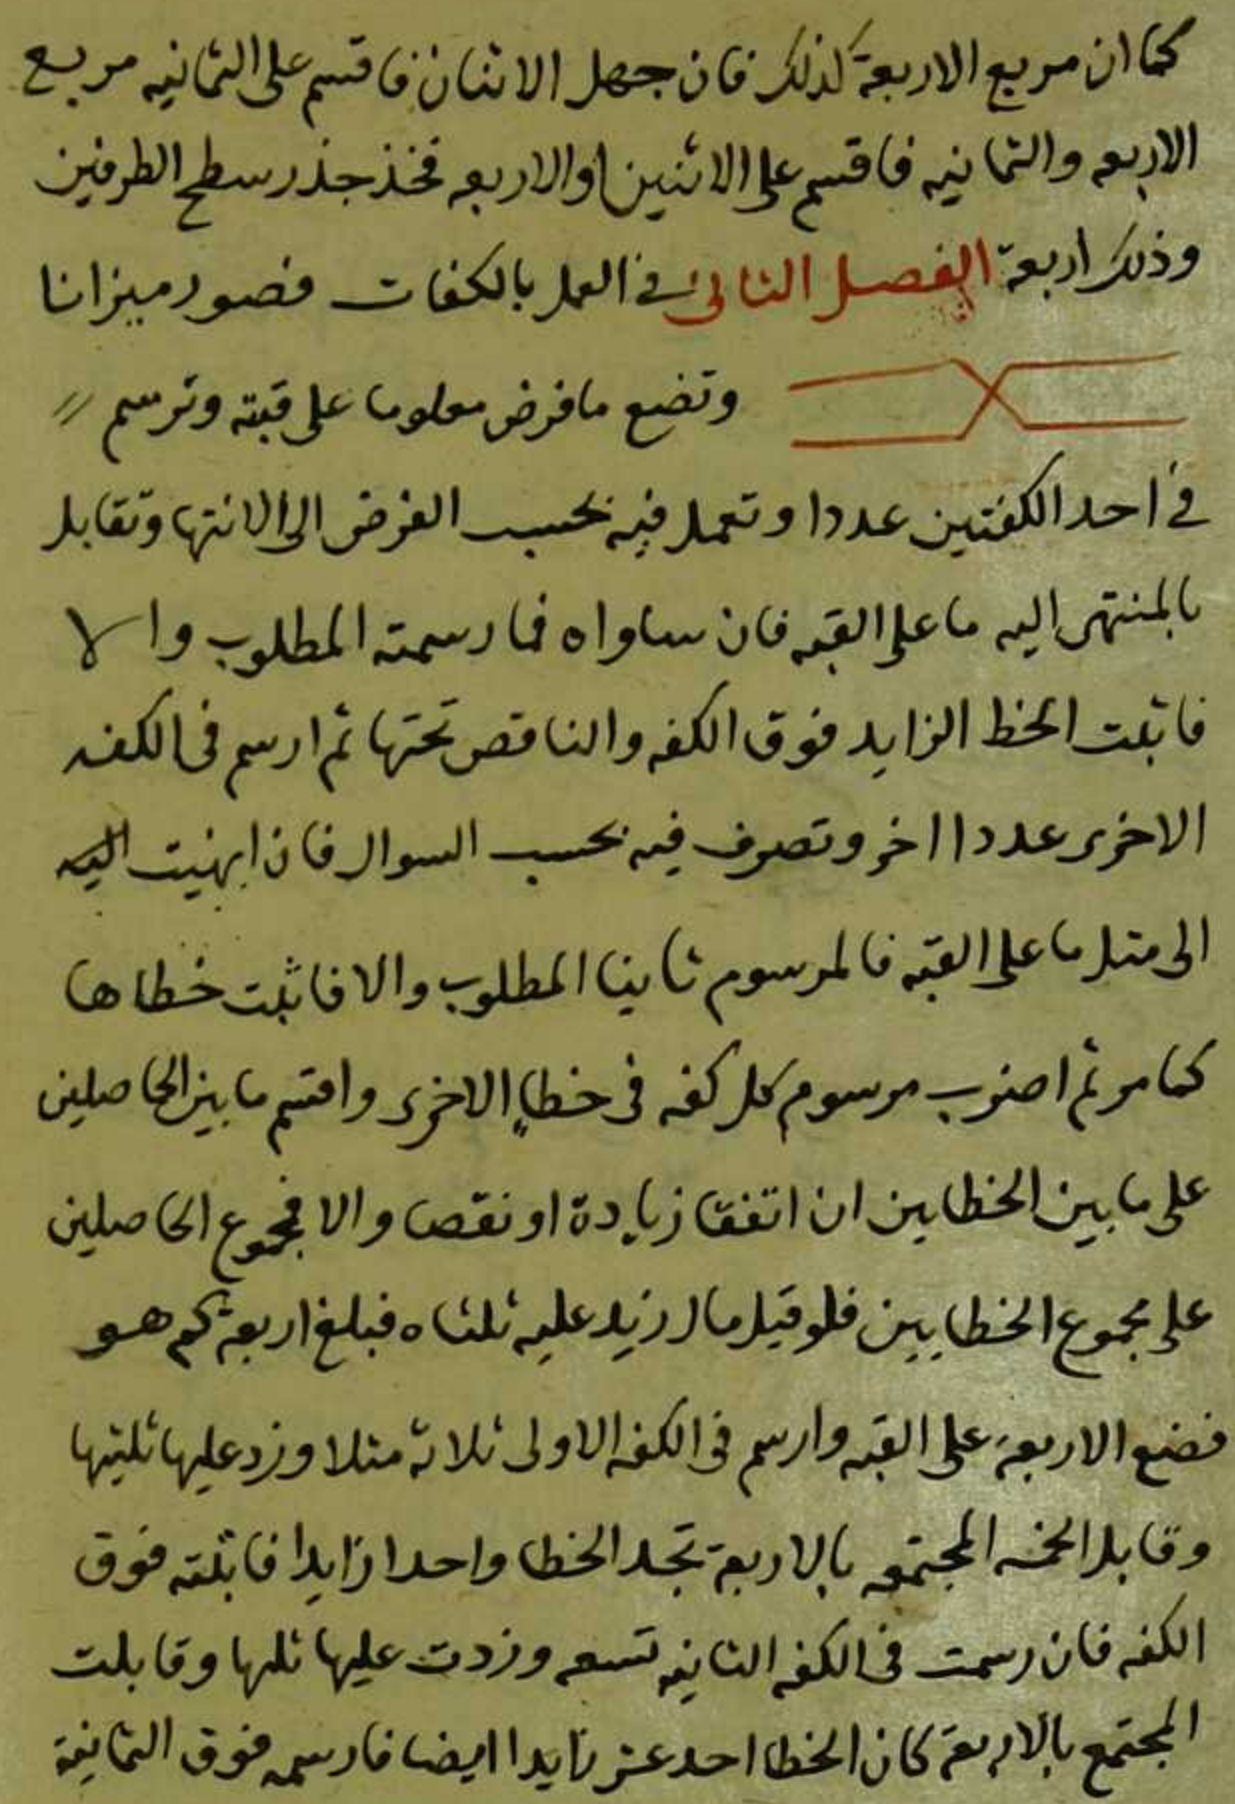 كما ان مربع الاربعة كذلك فان جهل الاثنان فاقسم على الثمانيه مربع
الاربعه والثمانيه فاقسم على الاثنين او الاربعه فخذ جذر سطح الطرفين
وذلك اربعة الفصل الثانى فى العمل بالكفات فصور ميزانا
وتضع ما فرض معلوما على قبته وترسم
فى احد الكفتين عددا وتعمل فيه بحسب الفرض الى الانتها وتقابل
بالمنتهى اليه ما على القبه فان ساواه فما رسمته المطلوب والا
فاثبت الخطا الزايد فوق الكفه والناقص تحتها ثم ارسم فى الكفه
الاخرى عددا اخر وتصرف فيه بحسب السوال فان انهيت اليه
الى مثل ما على القبه فالمرسوم ثانيا المطلوب والا فاثبت خطاها
كما مر ثم اضرب مرسوم كل كفه فى خطا الاخرى واقسم ما بين الحاصلين
على ما بين الخطايين ان اتفقا زيادة او نقصا والا فمجموع الحاصلين
على مجموع الخطايين فلو قيل مال زيد عليه ثلثاه فبلغ اربعة كم هو
فضع الاربعة على القبه وارسم فى الكفه الاولى ثلاثة مثلا وزد عليها ثلثيها
وقابل الخمسه المجتمعه بالاربعة تجد الخطا واحدا زايدا فاثبته فوق
الكفه فان رسمت فى الكفه الثانيه تسعه وزدت عليها ثلثها وقابلت
المجتمع بالاربعة كان الخطا احد عشر زايدا ايضا فارسمه فوق الثانية